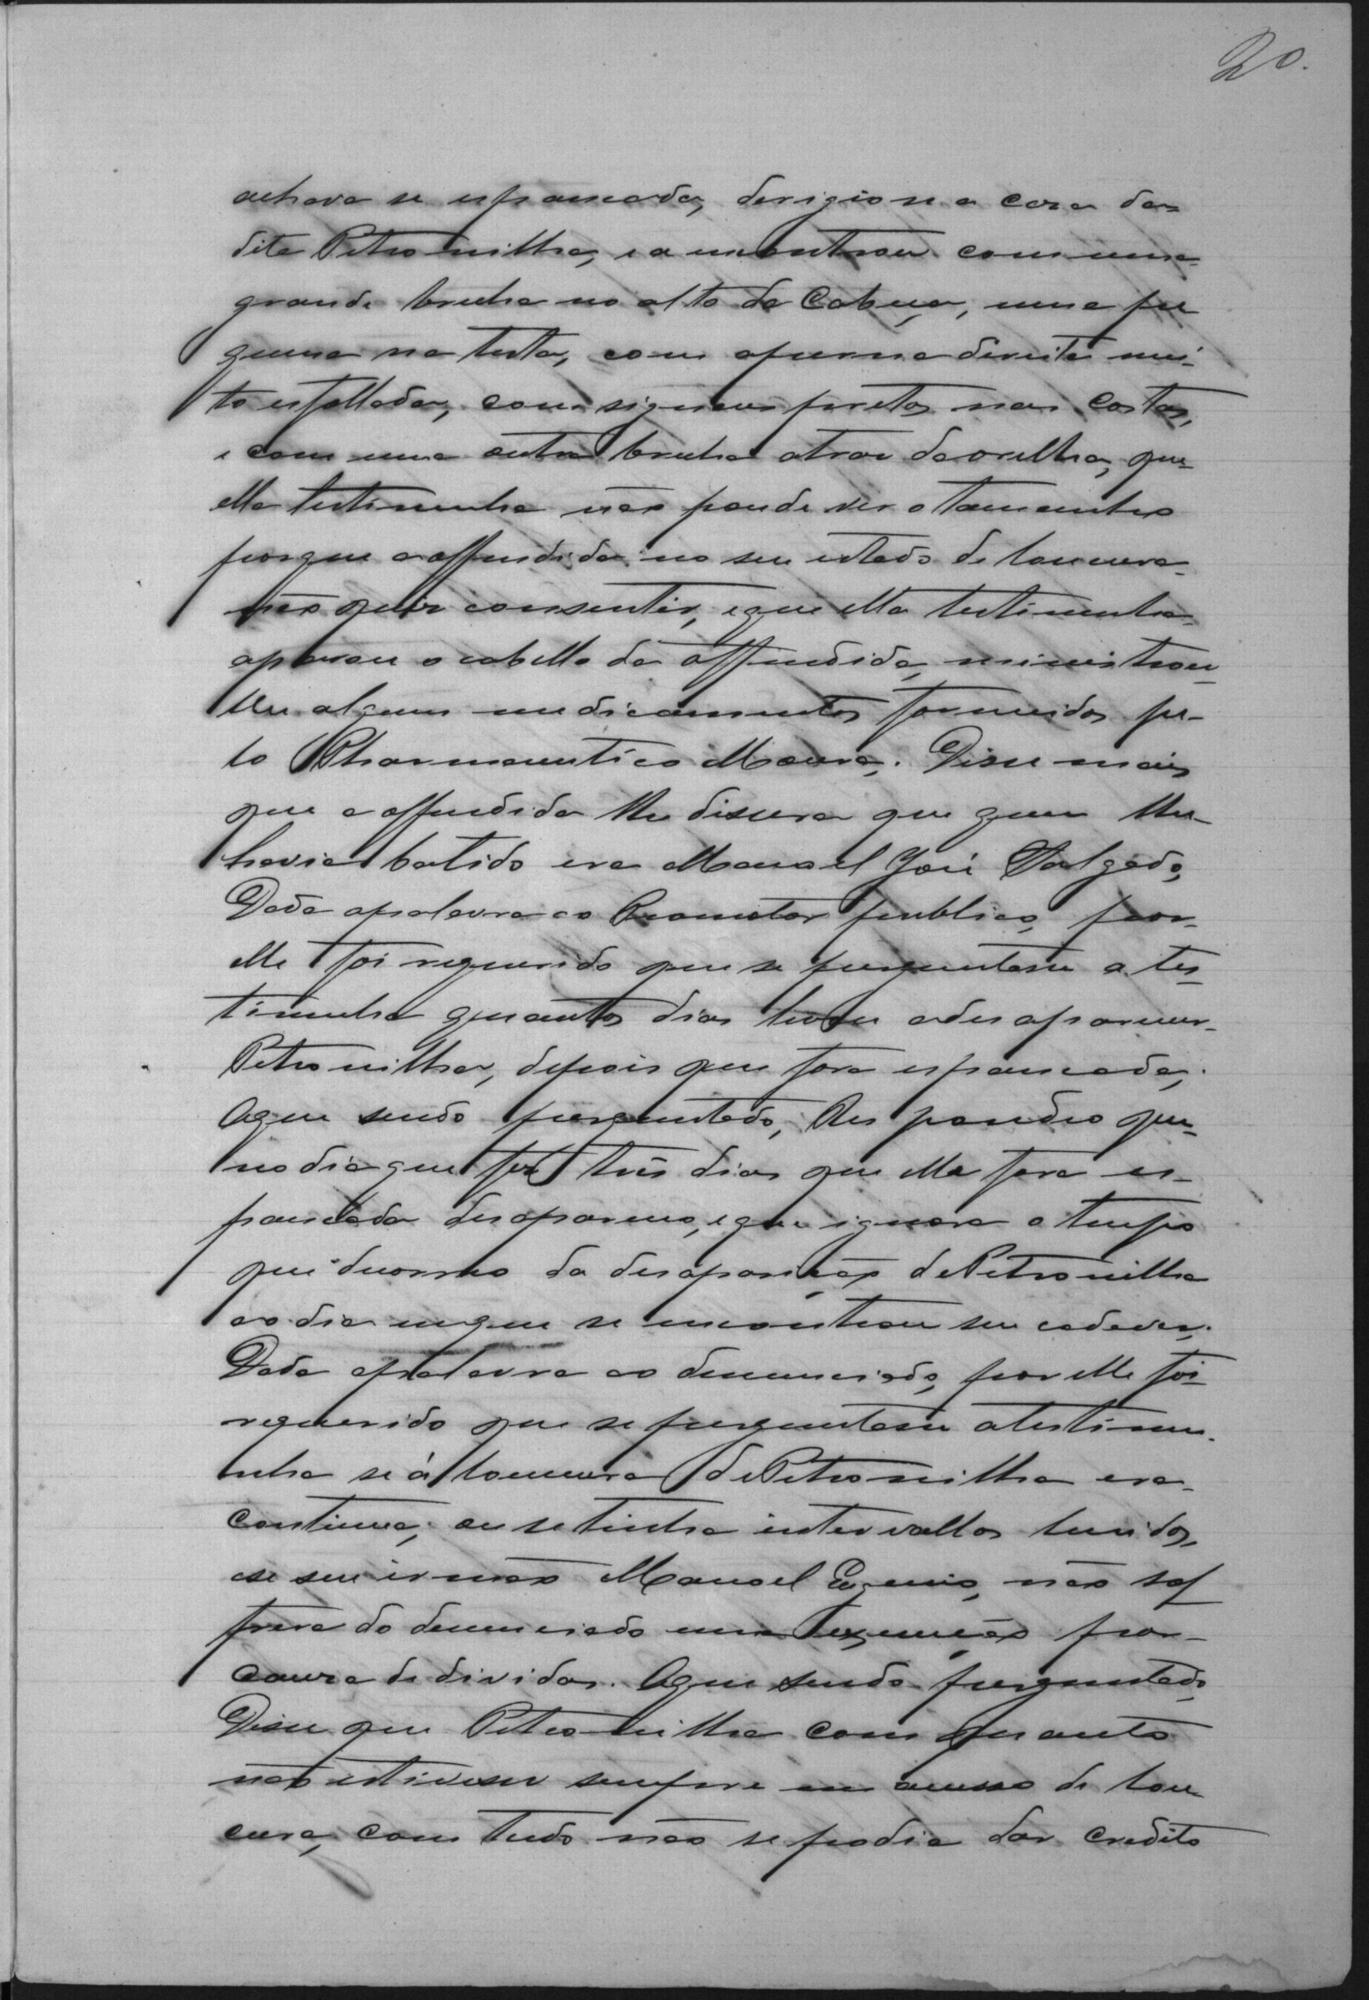 20.
achava se espancada, derigio se a casa da
dita Petronilha, e a encontrou com uma
grande brecha no alto da Cabeça, uma pe
quena na testa, com a perna direita mui-
to esfollada, com signaes pretos nas Costas,
e com uma outra brecha atraz da orelha, que
ella testimunha não poude ver o tamanho
porque a offendida no seu estado de loucura
não quiz consentir, e que ella testimunha
aparou o cabello da offendida, ministrou-
lhe alguns medicamentos fornecidos pe-
lo Pharmaceutico Moura. Disse mais
que a offendida lhe dissera que quem lhe
havia batido era Manoel José Salgado,
Dada a palavra ao Promotor publico, por
elle foi requerido que se perguntasse a tes-
timunha quantos dias levou a desaparecer
Petronilha, depois que fora espancada,
Aque sendo perguntado, Respondeo que
no dia que fez três dias que ella fora es-
pancada desapareceo, e que ignora o tempo
que decorreo da desaparição de Petronilha
ao dia em que se encontrou seu cadaver.
Dada a palavra ao denunciado, por elle foi
requerido que se perguntasse a testimu-
nha se á loucura de Petronilha era
continua, ou se tinha intervallos lucidos,
e se seu irmão Manoel Eugenio, não sof
frera do denunciado uma execução por
causa de dividas. Aque sendo perguntado,
Disse que Petronilha com quanto
não estivesse sempre em acesso de lou
cura, com tudo não se podia dar credito